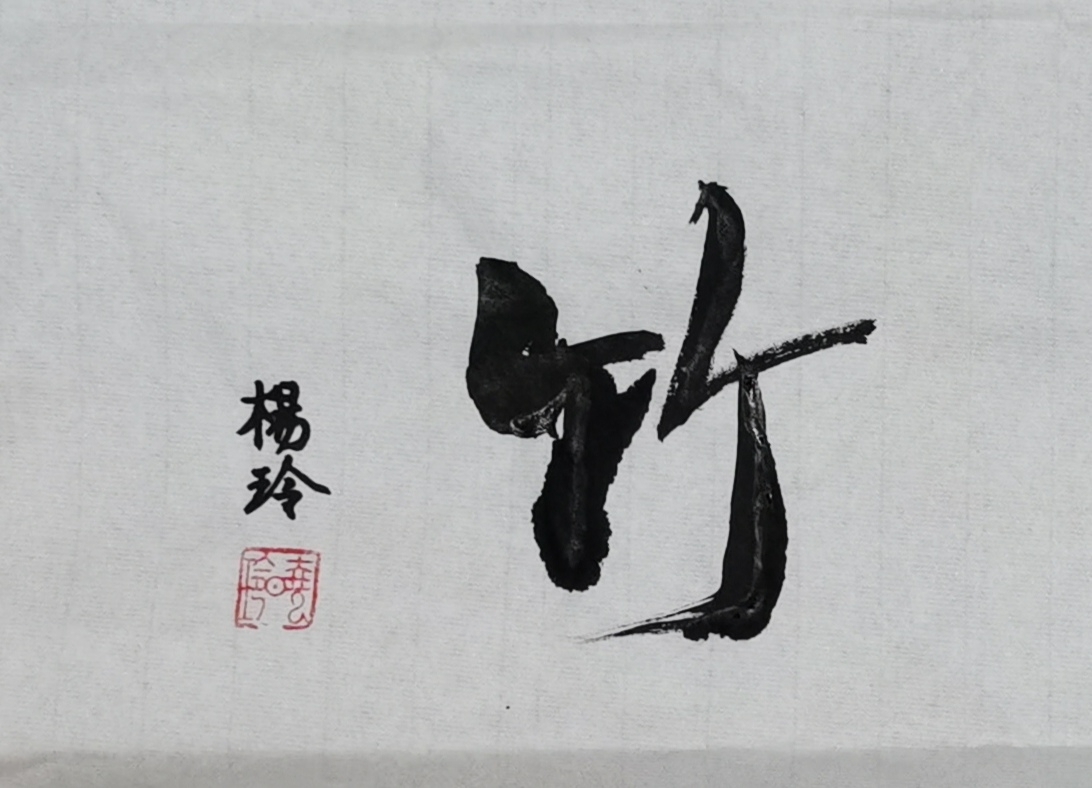 竹
楊玲